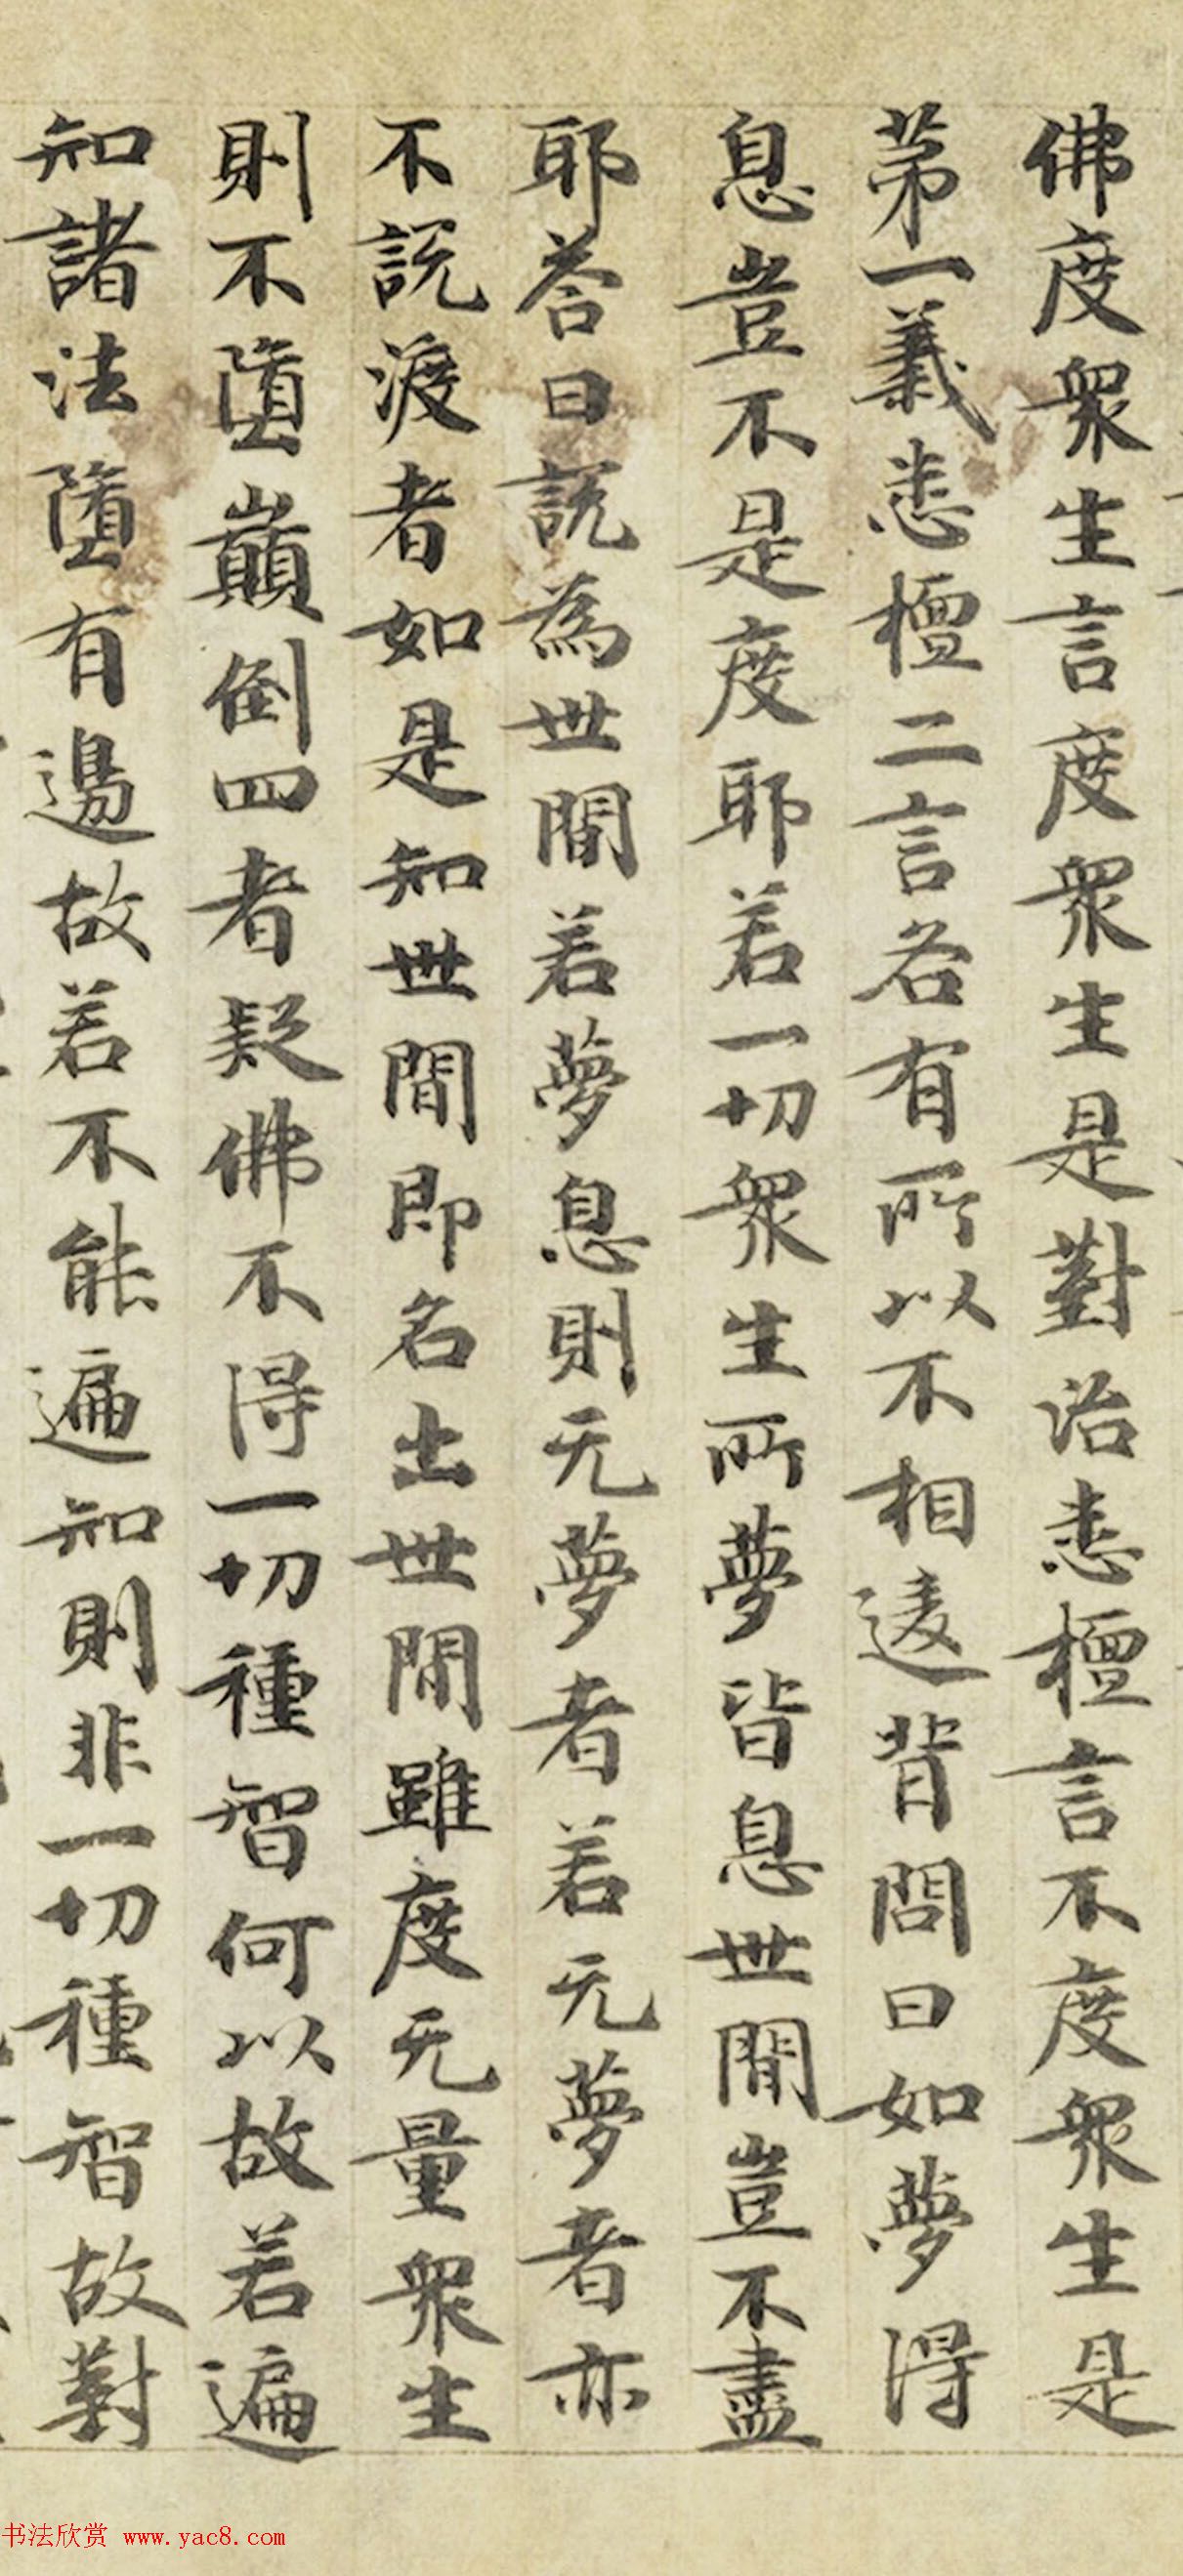 佛度衆生言度衆生是對治悉檀言不度衆生是
第一義悉檀二言各有所以不相違背問曰如夢得
息豈不是度耶若一切衆生所夢皆息世閒豈不盡
耶荅曰說為世間若夢息則无夢者若无夢者亦
不說渡者如是知世間即名出世閒雖度无量衆生
則不墮巔倒四者疑佛不得一切種智何以故若遍
知諸法墮有邊故若不能遍知則非一切種智故對
书法欣赏 www.yac8.com